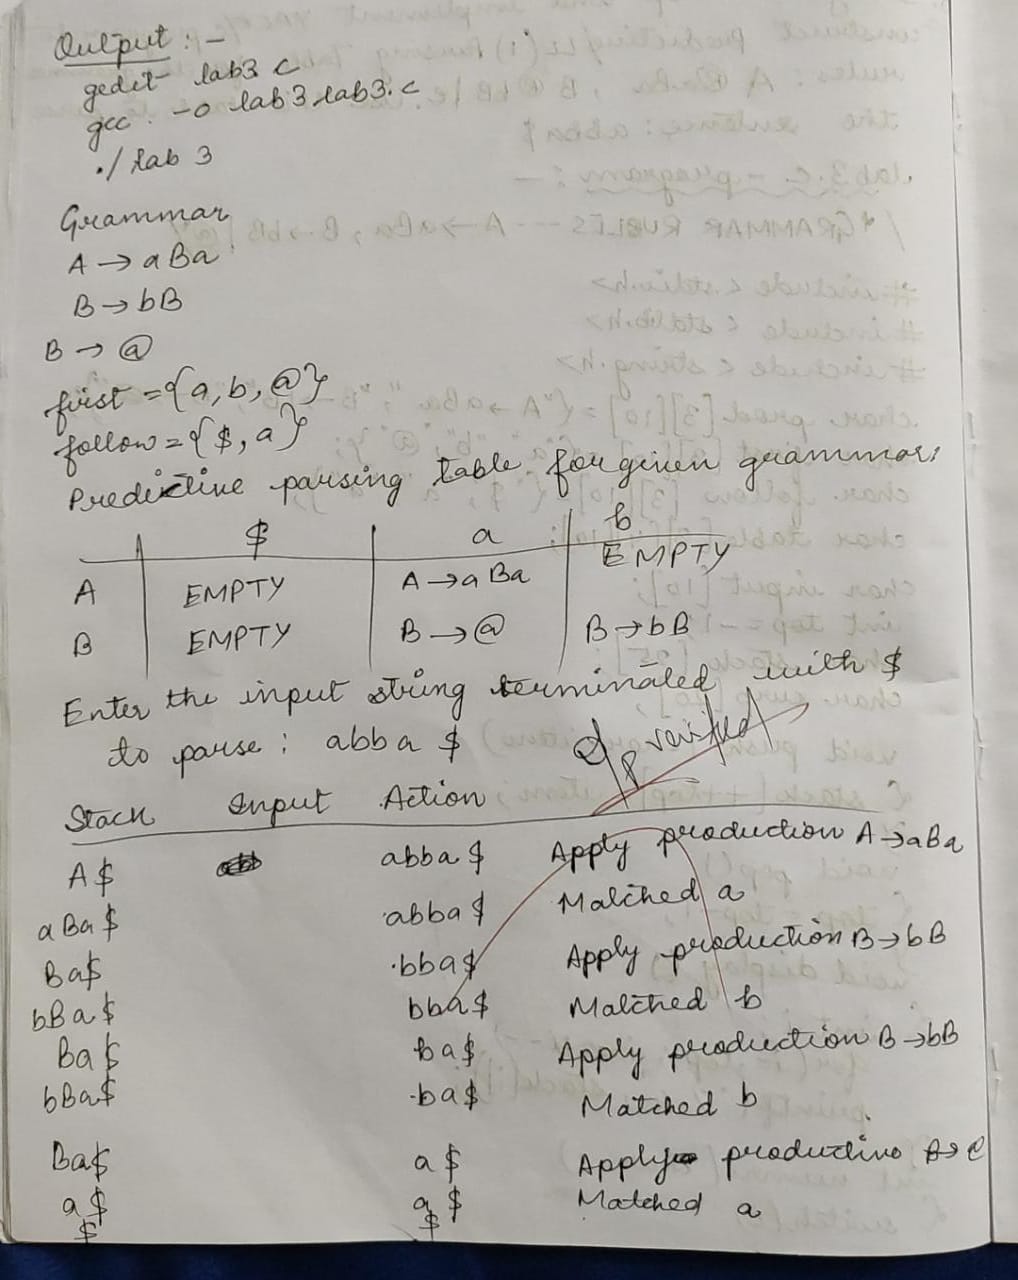 Output : -
gedit lab3 c
gcc -o lab3 lab3.c
./lab 3
Grammar
A → aBa
B → bB
B → @
first = {a, b, @}
follow = {$, a}
Predictive parsing table for given grammar:
$ a b
A EMPTY A → aBa EMPTY
B EMPTY B → @ B → bB
Enter the input string terminated with $
to parse : abba $
verified
Stack Input Action
A$ abba $ Apply production A → aBa
aBa $ abba $ Matched a
Ba$ bba$ Apply production B → bB
bBa$ bba$ Matched b
Ba$ ba$ Apply production B → bB
bBa$ ba$ Matched b
Ba$ a$ Apply productino
a$ a$ Matched a
$ $